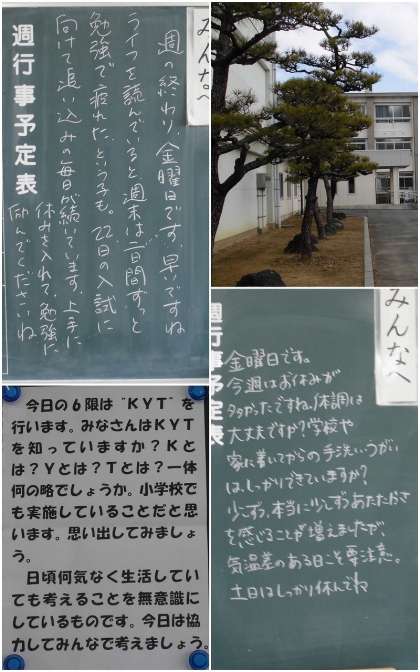 みんなへ
週の終わり、金曜日です。早いですね
ライフを読んでいると週末は二日間ずっと
勉強で疲れた、という子も。22日の入試に
向けて追い込みの毎日が続いています。上手に
休みを入れて、勉強に
励んでくださいね
週行事予定表
みんなへ
金曜日です。
今週はお休みが
多かったですね。体調は
大丈夫ですか?学校や
家に着いてからの手洗い、うがい
は、しっかりできていますか?
少しずつ、本当に少しずつあたたかさ
を感じることが増えましたが、
気温差のある日こそ要注意。
土日はしっかり休んでね
週行事予定表
今日の6限は“KYT”を
行います。みなさんはKYT
を知っていますか?Kと
は?Yとは?Tとは?一体
何の略でしょうか。小学校で
も実施していることだと思
います。思い出してみましょ
う。
日頃何気なく生活してい
ても考えることを無意識に
しているものです。今日は協
力してみんなで考えましょう。